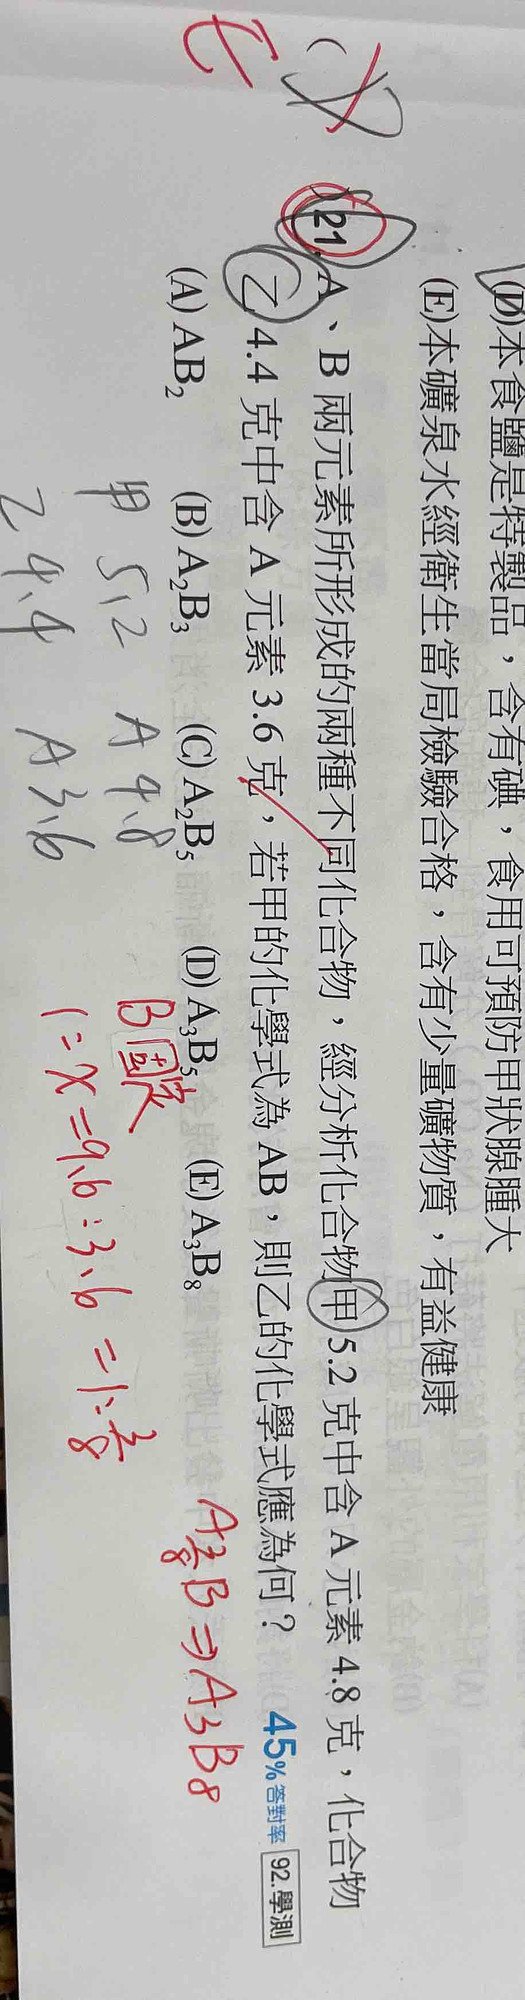 (D)本食鹽是特製品，含有碘，食用可預防甲狀腺腫大
(E)本礦泉水經衛生當局檢驗合格，含有少量礦物質，有益健康
21. A、B 兩元素所形成的兩種不同化合物，經分析化合物甲 5.2 克中含 A 元素 4.8 克，化合物
乙 4.4 克中含 A 元素 3.6 克，若甲的化學式為 AB，則乙的化學式應為何？ 45%答對率 92.學測
(A) AB₂ (B) A₂B₃ (C) A₂B₅ (D) A₃B₅ (E) A₃B₈
E
甲 5.2 A 4.8
乙 4.4 A 3.6
B固定
1:x=9.6:3.6=1:3/8
A3/8B⇒A₃B₈